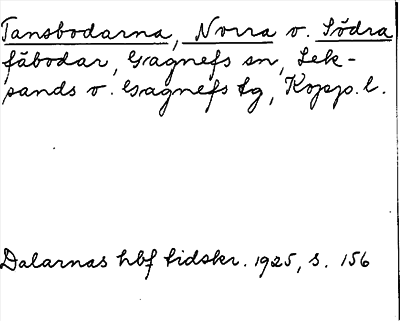 Tansbodarna, Norra o. Södra
fäbodar, Gagnefs sn, Lek-
sands o. Gagnefs tg, Kopp. l.
Dalarnas hbf tidskr. 1925, s. 156